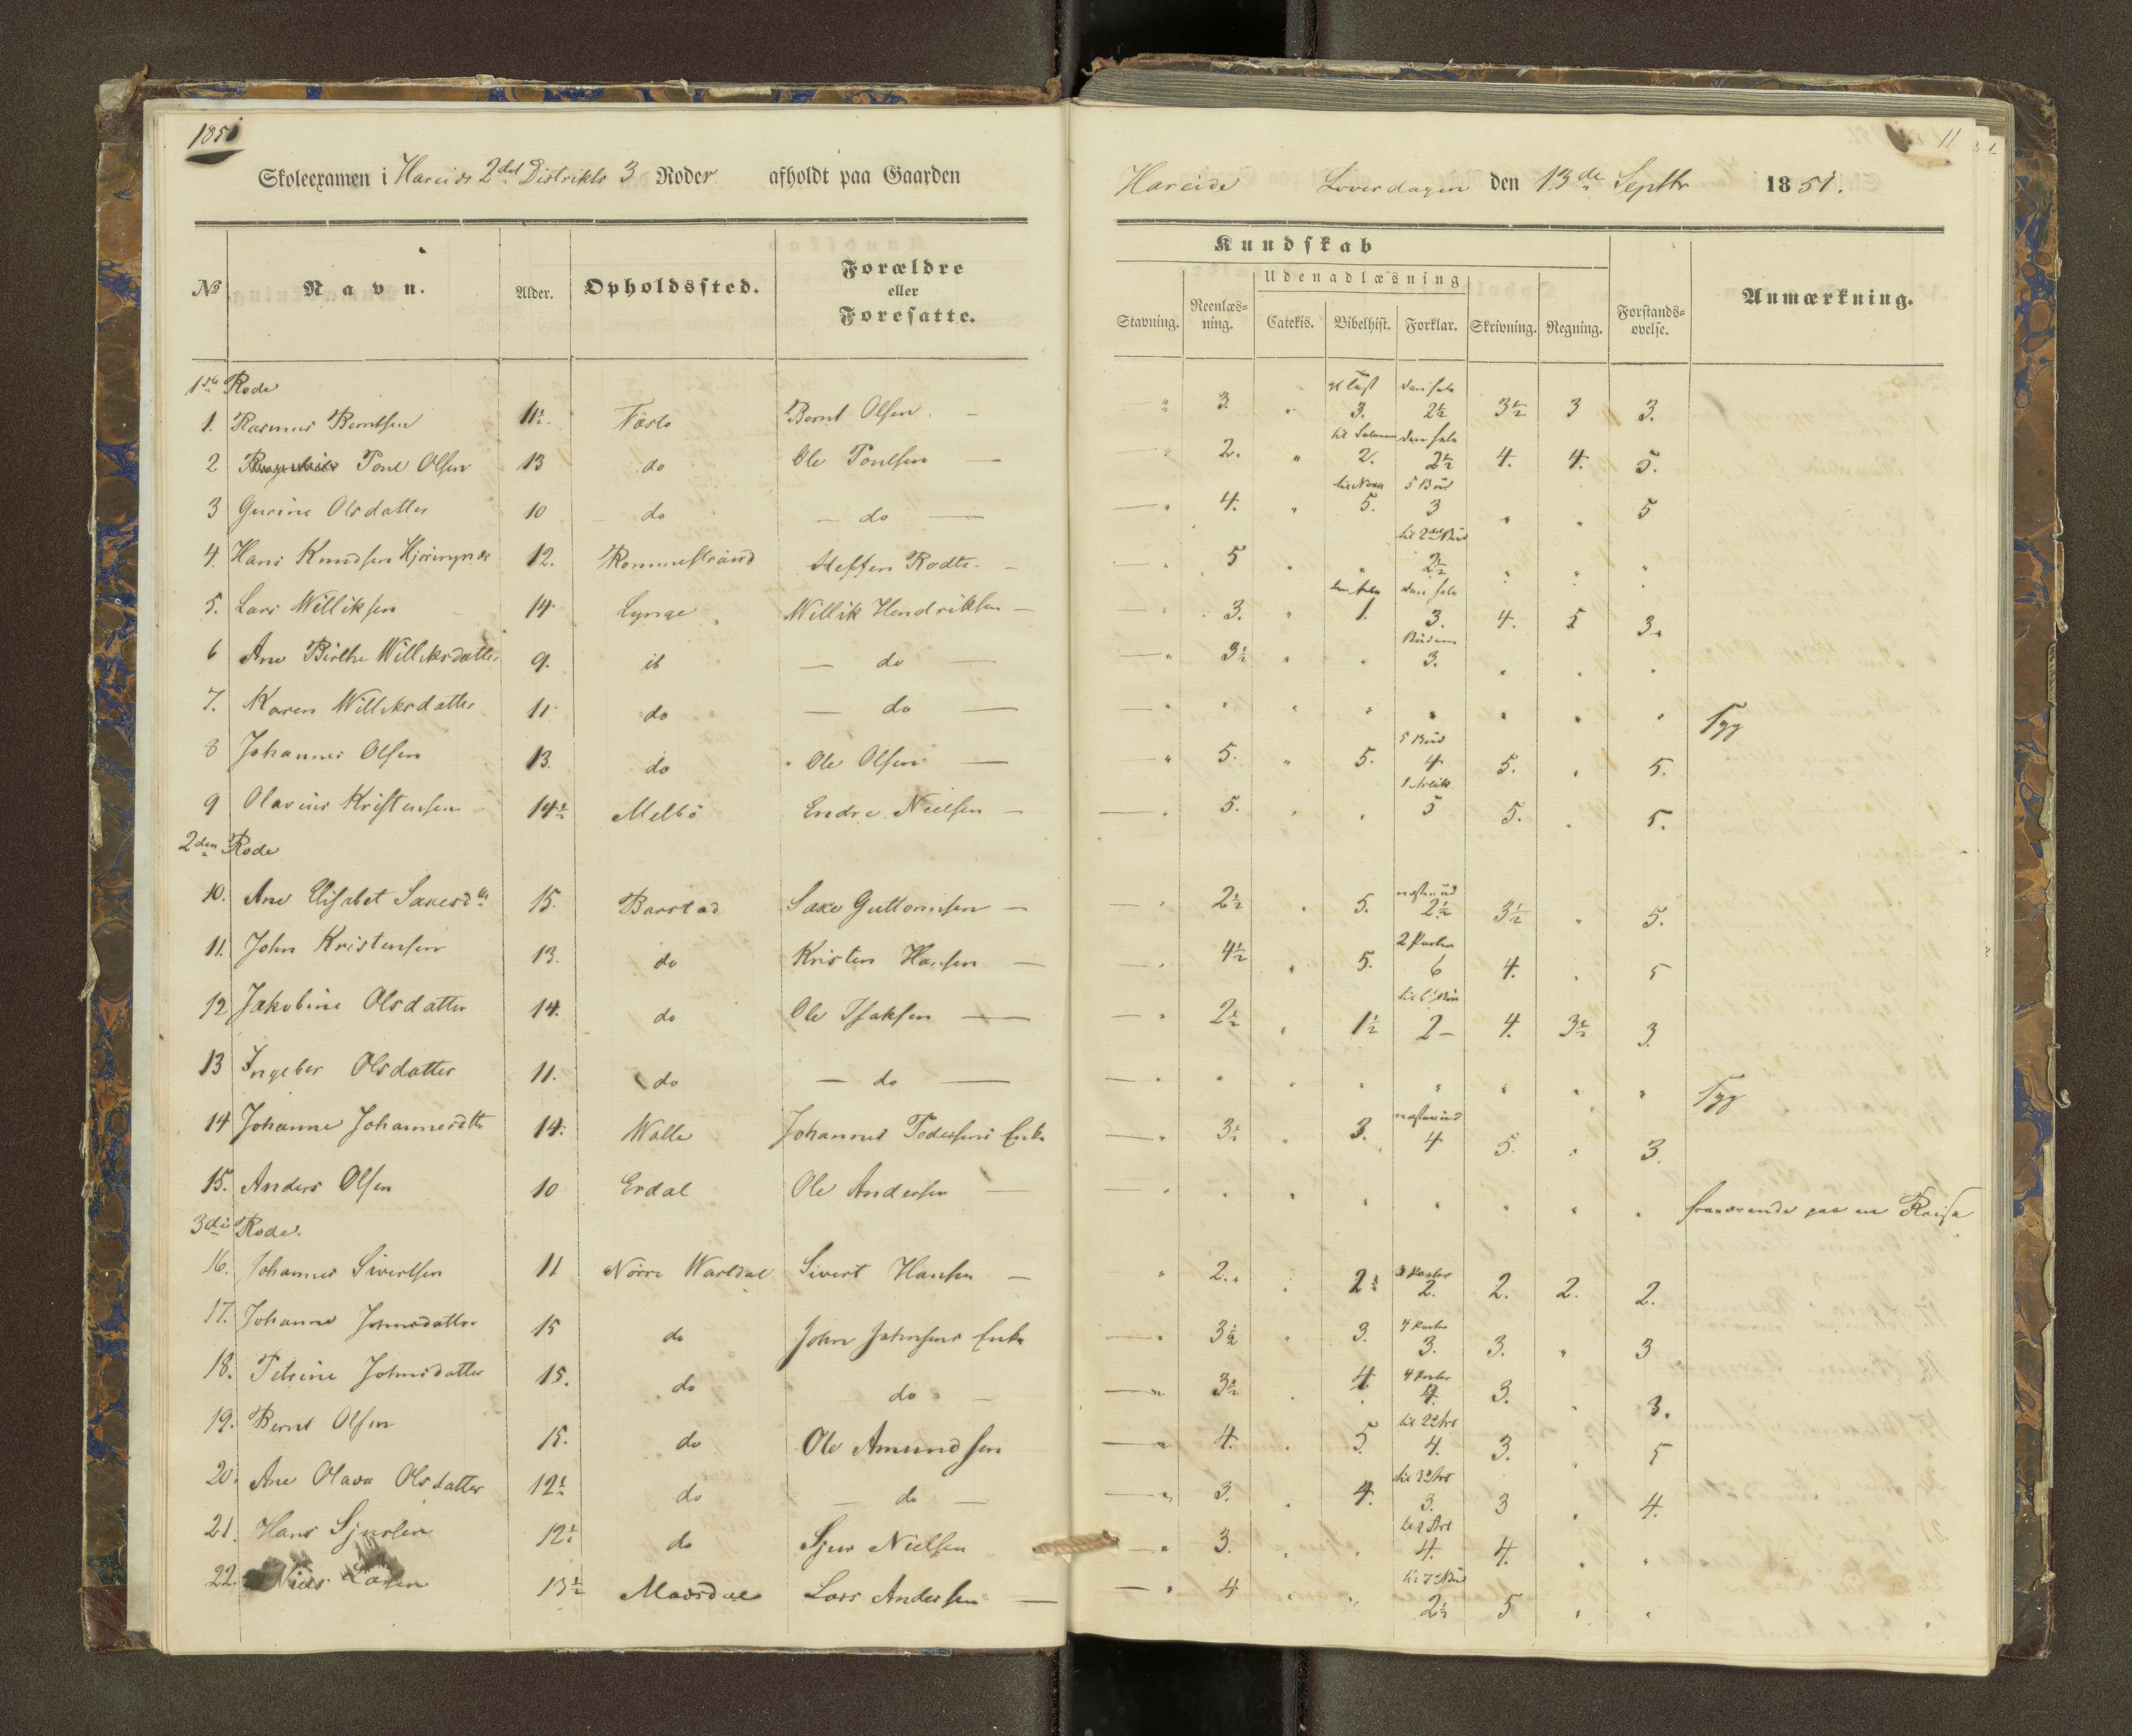 1851
Skoleexamen i Hareids 2det Distrikts 3 Roder afholdt paa Gaarden
No Navn. Alder. Opholdssted. Forældre eller Foresatte.
1ste Rode
1. Rasmus Berntsen 11½ Bernt Olsen. —
2 Poul Olsen 13 do Ole Poulsen —
3 Gurine Olsdatter 10 do — do —
4. Hans Knudsen 12. Steffen —
5. Lars Williksen 14 Lynge Willik Hendriksen —
6 Ane Birthe Williksdatter 9. ib — do —
7. Karen Williksdatter 11 do — do —
8 Johannes Olsen 13. do Ole Olsen —
9 Olavius Kristensen 14½ Melbö Endre Nielsen —
2den Rode
10. Ane Elisabet Saxesdtr 15. Barstad Saxe Guttormsen —
11. John Kristensen 13. do Kristen Hansen —
12 Jakobine Olsdatter 14. do Ole Isaksen —
13 Ingebor Olsdatter 11. do — do —
14 Johanne Johannesdtr 14. Walle Johannes Pedersens Enke
15. Anders Olsen 10 Erdal Ole Andersen —
3die Rode.
16. Johannes Sivertsen 11 Nörre Wartdal Sivert Hansen —
17. Johanne Johnsdatter 15 do John Johnsens Enke
18. Petrine Johnsdatter 15. do do —
19. Bernt Olsen 15. do Ole Amundsen
20. Ane Olava Olsdatter 12½ do — do —
21. Hans 12½ do Sjur Nielsen
22. Nils Larsen 13½ Maarsdal Lars Andersen —
11
Hareide Löverdagen den 13de Septbr 1851.
Kundskab
Udenadlæsning
Stavning. Reenlæsning. Catekis. Bibelhist. Forklar. Skrivning. Regning. Forstandsøvelse. Anmærkning.
den hele
— " 3. " 3. 2½ 3½ 3 3.
den hele
— " 2. " 2. 2½ 4. 4. 5.
5 Bud
— " 4. " 5. 3 " " 5
til 2det Bud
— " 5 " " 2½ " " "
den hele den hele
— " 3. " 1. 3. 4. 5 3.
Budene
— " 3½ " " 3. " " "
— " " " " " " " " Syg
5 Bud
— " 5. " 5. 4 5. " 5.
1 Artik
— " 5. " " 5 5. " 5.
næsten ud
— " 2½ " 5. 2½ 3½ " 5.
2 Parter
— " 4½ " 5. 6 4. " 5
— " 2½ " 1½ 2 — 4. 3½ 3.
— " " " " " " " " Syg
næsten ud
— " 3½ " 3. 4 5. " 3.
— " " " " " " " " fraværende paa en Reise
3 Parter
" 2. " 2½ 2. 2. 2. 2.
4 Parter
— " 3½ " 3. 3. 3. " 3
4 Parter
— " 3½ " 4 4. 3. " 3.
til 2 Art
— " 4. " 5. 4. 3. " 5
til 3 Art
— " 3. " 4. 3. 3 " 4.
til 2 Art
— " 3. " " 4. 4. " "
til 7 Bud
— " 4 " " 2½ 5 " "